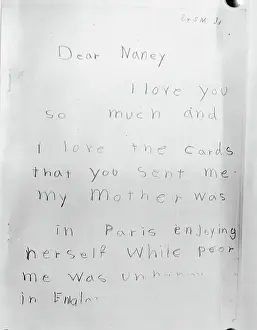 Dear Naney
I love you
so much and
I love the cards
that you sent me.
my Mother was
in Paris enjoying
herself While poor
me was
in